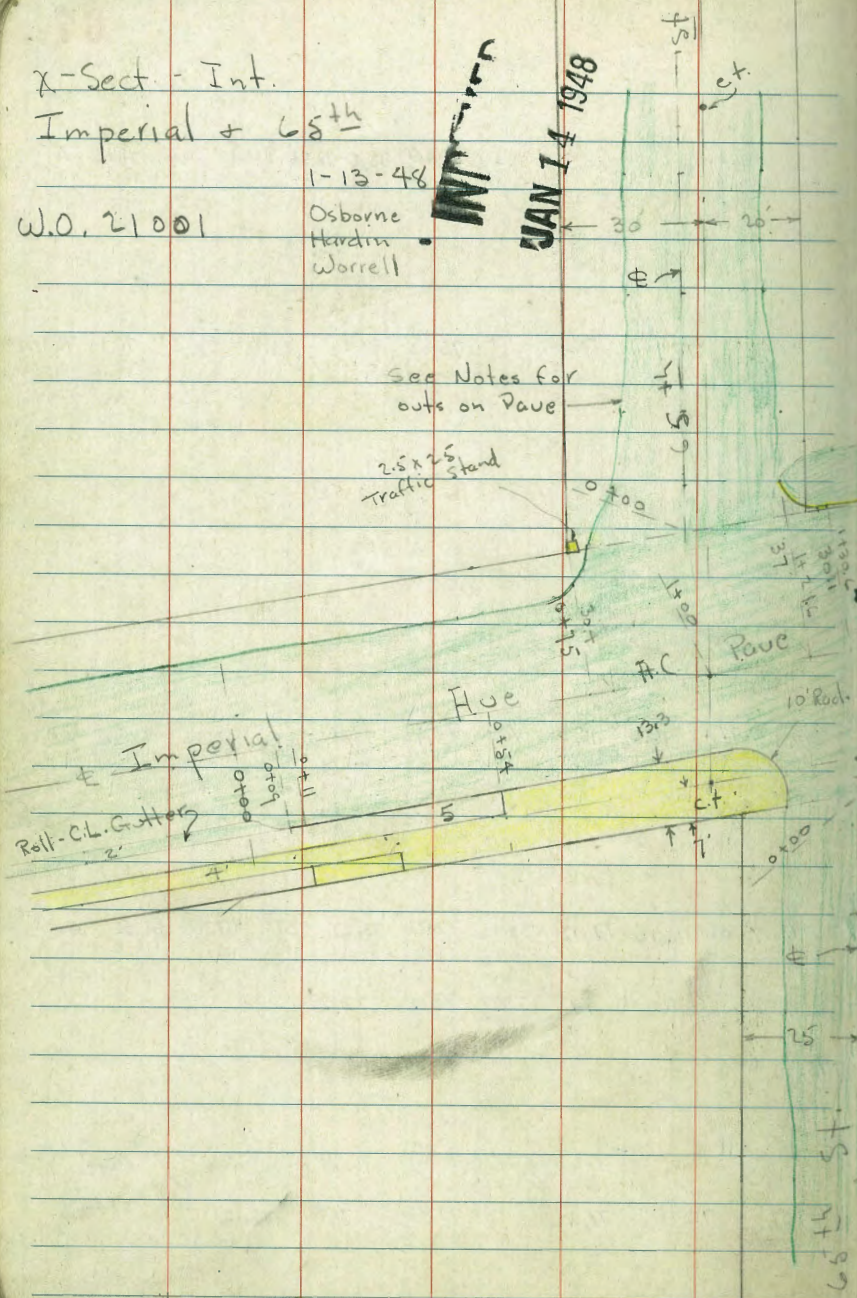 X-Sect - Int.
Imperial & 65th
1-13-48
W.O. 21001
Osborne
Hardin
Worrell
JAN 14 1948
St.
c.t.
30'
20'
℄
65th
See Notes for
outs on Pave
2.5 x 2.5
Traffic Stand
0+00
0+75
30+
1+00
37
A.C. Pave
10' Rad.
13.3
Ave
0+54
℄ Imperial
0+11
0+09
0+00
Roll-C.L. Gutter
2'
4'
5
c.t.
7'
0+00
℄
25
65th St.